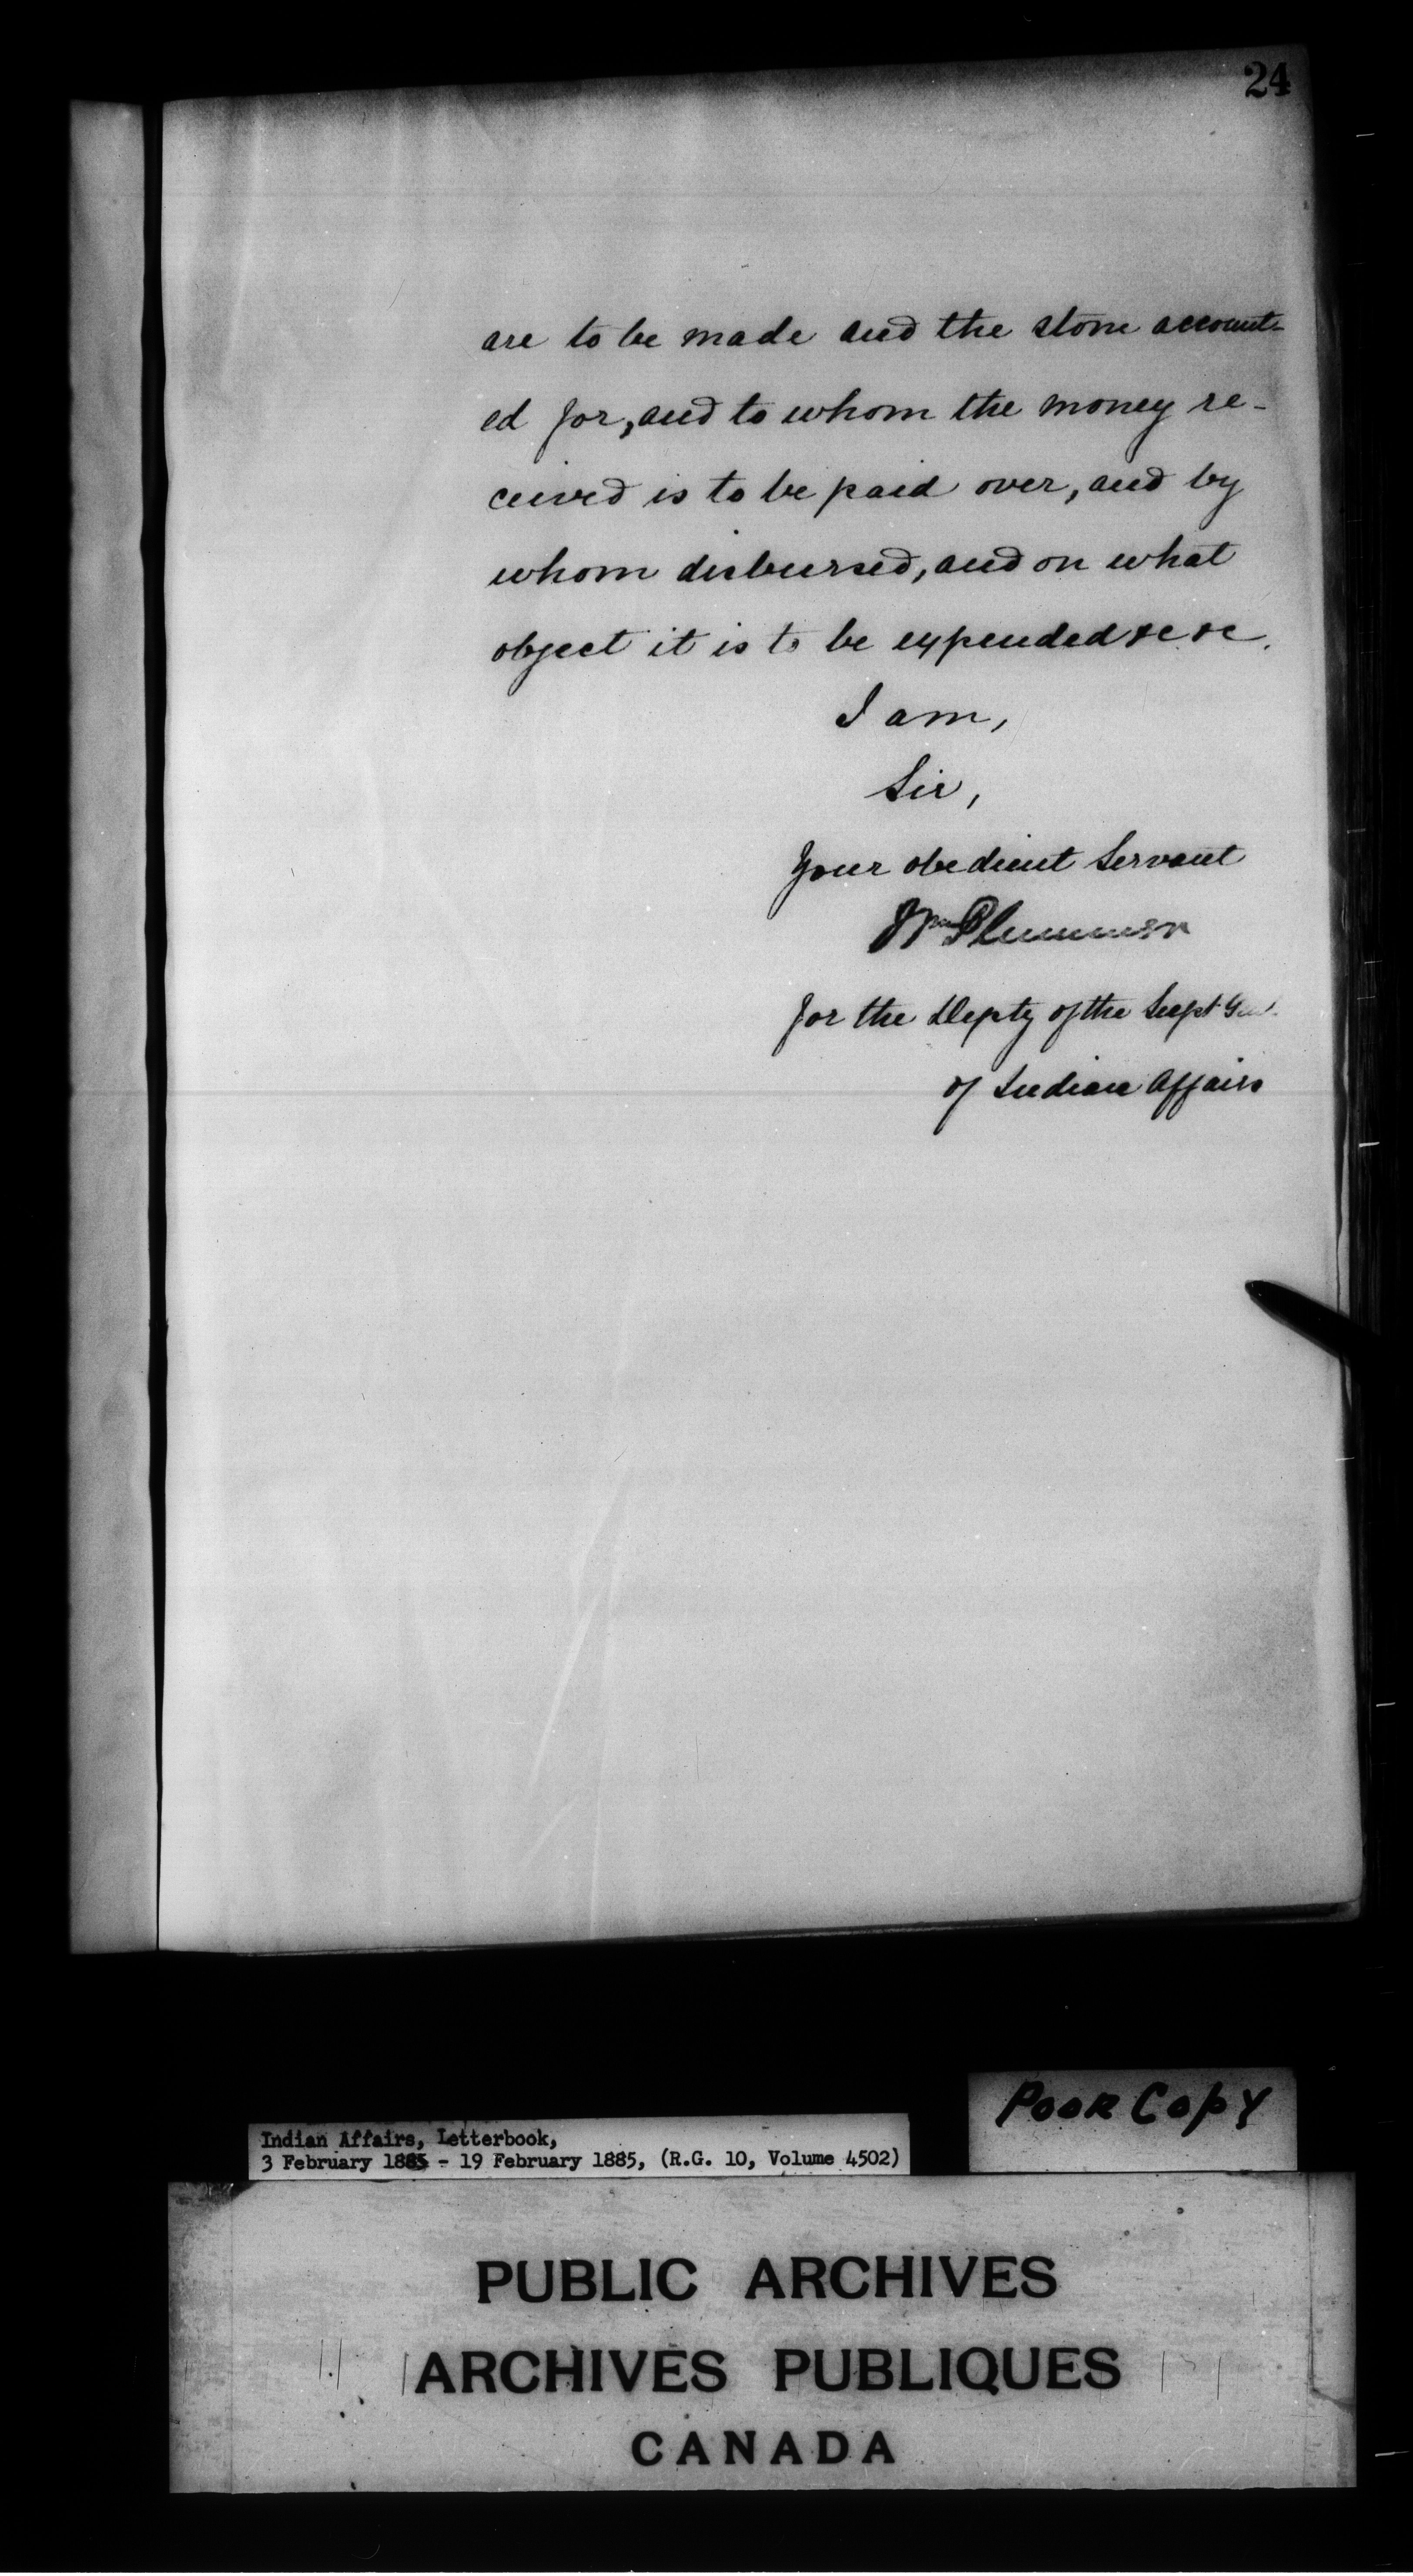 24
are to be made and the stone account-
ed for, and to whom the money re-
ceived is to be paid over, and by
whom disbursed, and on what
object it is to be expended &c &c.
I am,
Sir,
Your obedient Servant
Wm Plummer
for the Depty of the Supt Genl.
of Indian Affairs
Poor Copy
Indian Affairs, Letterbook,
3 February 1885 - 19 February 1885, (R.G. 10, Volume 4502)
PUBLIC ARCHIVES
ARCHIVES PUBLIQUES
CANADA